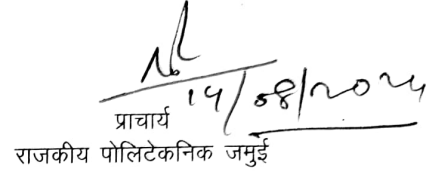 14/08/2024
प्राचार्य
राजकीय पोलिटेकनिक जमुई